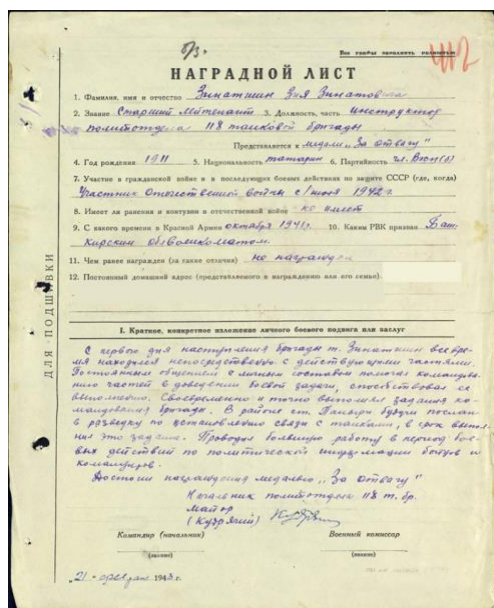 б/з.
Все графы заполнять полностью
412
НАГРАДНОЙ ЛИСТ
1. Фамилия, имя и отчество Зинатшин Зия Зинатович
2. Звание Старший Лейтенант 3. Должность, часть инструктор
политотдела 118 танковой бригады
Представляется к медали „За отвагу"
4. Год рождения 1911 5. Национальность татарин 6. Партийность чл. ВКП(б)
7. Участие в гражданской войне и в последующих боевых действиях по защите СССР (где, когда)
Участник Отечественной войны с 1 июля 1942 г.
8. Имеет ли ранения и контузии в отечественной войне не имеет
9. С какого времени в Красной Армии октября 1941 г. 10. Каким РВК призван Баш-
кирским облвоенкоматом.
11. Чем ранее награжден (за какие отличия) не награжден
12. Постоянный домашний адрес (представляемого к награждению или его семьи)
ДЛЯ ПОДШИВКИ
I. Краткое, конкретное изложение личного боевого подвига или заслуг
С первого дня наступления бригады т. Зинатшин все вре-
мя находился непосредственно с действующими частями.
Постоянным общением с личным составом помогал командова-
нию частей в доведении боевой задачи, способствовал ее
выполнению. Своевременно и точно выполнял задания ко-
мандования бригады. В районе ст. будучи послан
в разведку по установлению связи с танками, в срок выпол-
нил это задание. Проводил большую работу в период бое-
вых действий по политической информации бойцов и
командиров.
Достоин награждения медалью „За отвагу"
Начальник политотдела 118 т. бр.
майор
(Кудрячий)
Командир (начальник) Военный комиссар
(подпись) (подпись)
„21" февраля 1943 г.